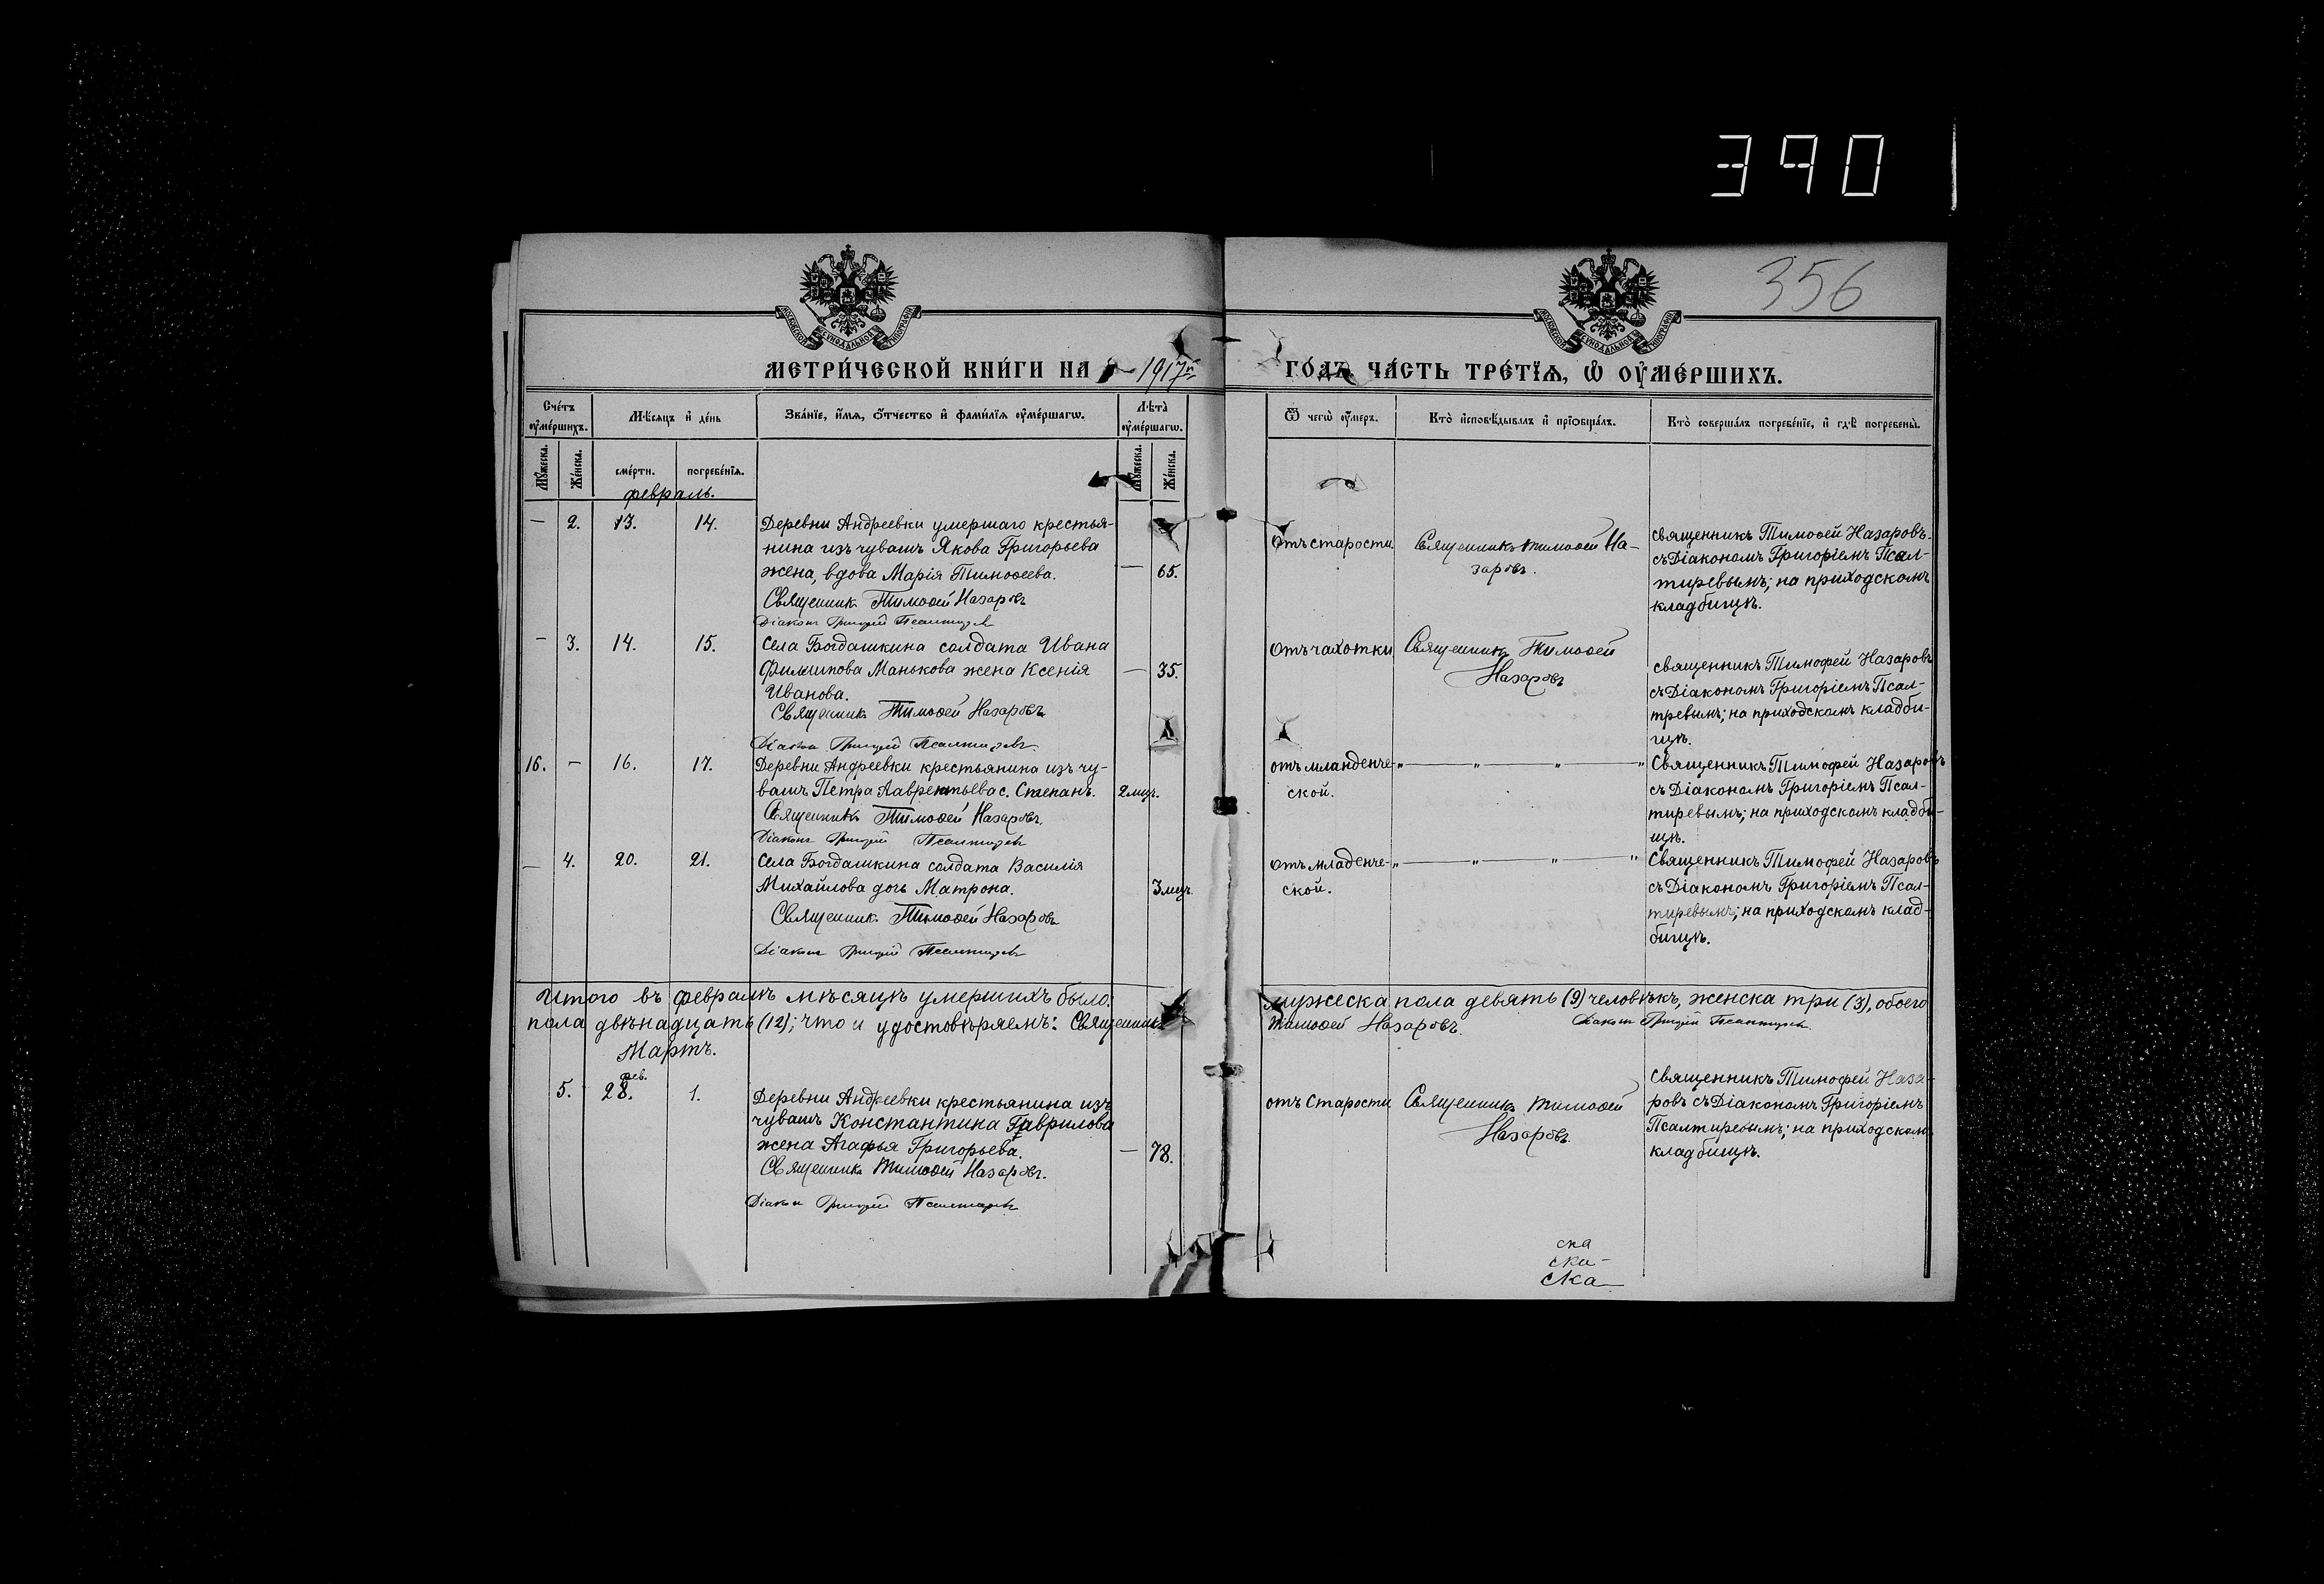 390
356
МОСКОВСКОЙ СѴНОДАЛЬНОЙ ТИПОГРАФІИ
МОСКОВСКОЙ СѴНОДАЛЬНОЙ ТИПОГРАФІИ
МЕТРИ́ЧЕСКОЙ КНИ́ГИ НА 1917й ГО́ДЪ ЧА́СТЬ ТРЕ́ТІѦ, Ѡ҆ ОУ҆МЕ́РШИХЪ.
Сче́тъ оу҆ме́ршихъ.
Мѣ́сяцъ и҆ де́нь
Зва́нїе, и҆́мѧ, ѻ҆́тчество и҆ фами́лїѧ оу҆ме́ршагѡ.
Лѣ́та оу҆ме́ршагѡ.
Ѿ чегѡ̀ оу҆́меръ.
Кто̀ и҆сповѣ́дывалъ и҆ прїѡбща́лъ.
Кто̀ соверша́лъ погребе́нїе, и҆ гдѣ̀ погребены̀.
Мꙋ́жеска.
Же́нска.
сме́рти.
погребе́нїѧ.
Мꙋ́жеска.
Же́нска.
февраль.
— 2. 13. 14.
Деревни Андреевки умершаго крестья-
нина изъ чувашъ Якова Григорьева
жена, вдова Марія Тимоѳеева.
Священникъ Тимоѳей Назаровъ
Діаконъ Григорій Псалтиревъ
— 65.
Отъ старости.
Священникъ Тимоѳей На-
заровъ.
священникъ Тимоѳей Назаровъ.
съ Діакономъ Григоріемъ Псал-
тиревымъ; на приходскомъ
кладбищѣ.
— 3. 14. 15.
Села Богдашкина солдата Ивана
Филиппова Манькова жена Ксенія
Иванова.
Священникъ Тимоѳей Назаровъ
Діаконъ Григорій Псалтиревъ.
— 35.
Отъ чахотки
Священникъ Тимоѳей
Назаровъ
священникъ Тимофей Назаровъ
съ Діакономъ Григоріемъ Псал-
тревымъ; на приходскомъ кладби-
щѣ.
16. — 16. 17.
Деревни Андреевки крестьянина изъ чу-
вашъ Петра Лаврентьева с. Степанъ.
Священникъ Тимоѳей Назаровъ.
Діаконъ Григорій Псалтиревъ
2 мц.
отъ мланденче-
ской.
„ — „ — „ — „
Священникъ Тимофей Назаровъ
съ Діакономъ Григоріемъ Псал-
тиревымъ; на приходскомъ кладби-
щѣ.
— 4. 20. 21.
Села Богдашкина солдата Василія
Михайлова дочь Матрона.
Священникъ Тимоѳей Назаровъ
Діаконъ Григорій Псалтиревъ
3 мц.
отъ младенче-
ской.
„ — „ — „ — „
Священникъ Тимофей Назаровъ
съ Діакономъ Григоріемъ Псал-
тиревымъ; на приходскомъ клад-
бищѣ.
Итого въ февралѣ мѣсяцѣ умершихъ было: мужеска пола девять (9) человѣкъ, женска три (3), обоего
пола двѣнадцать (12); что и удостовѣряемъ: Священникъ Тимоѳей Назаровъ. Діаконъ Григорій Псалтиревъ
Мартъ.
фев.
5. 28. 1.
Деревни Андреевки крестьянина изъ
чувашъ Константина Гаврилова
жена Агафья Григорьева.
Священникъ Тимоѳей Назаровъ.
Діаконъ Григорій Псалтиревъ
— 78.
отъ Старости
Священникъ Тимоѳей
Назаровъ.
Священникъ Тимофей Наза-
ровъ съ Діакономъ Григоріемъ
Псалтиревымъ; на приходскомъ
кладбищѣ.
ска
ска-
ска